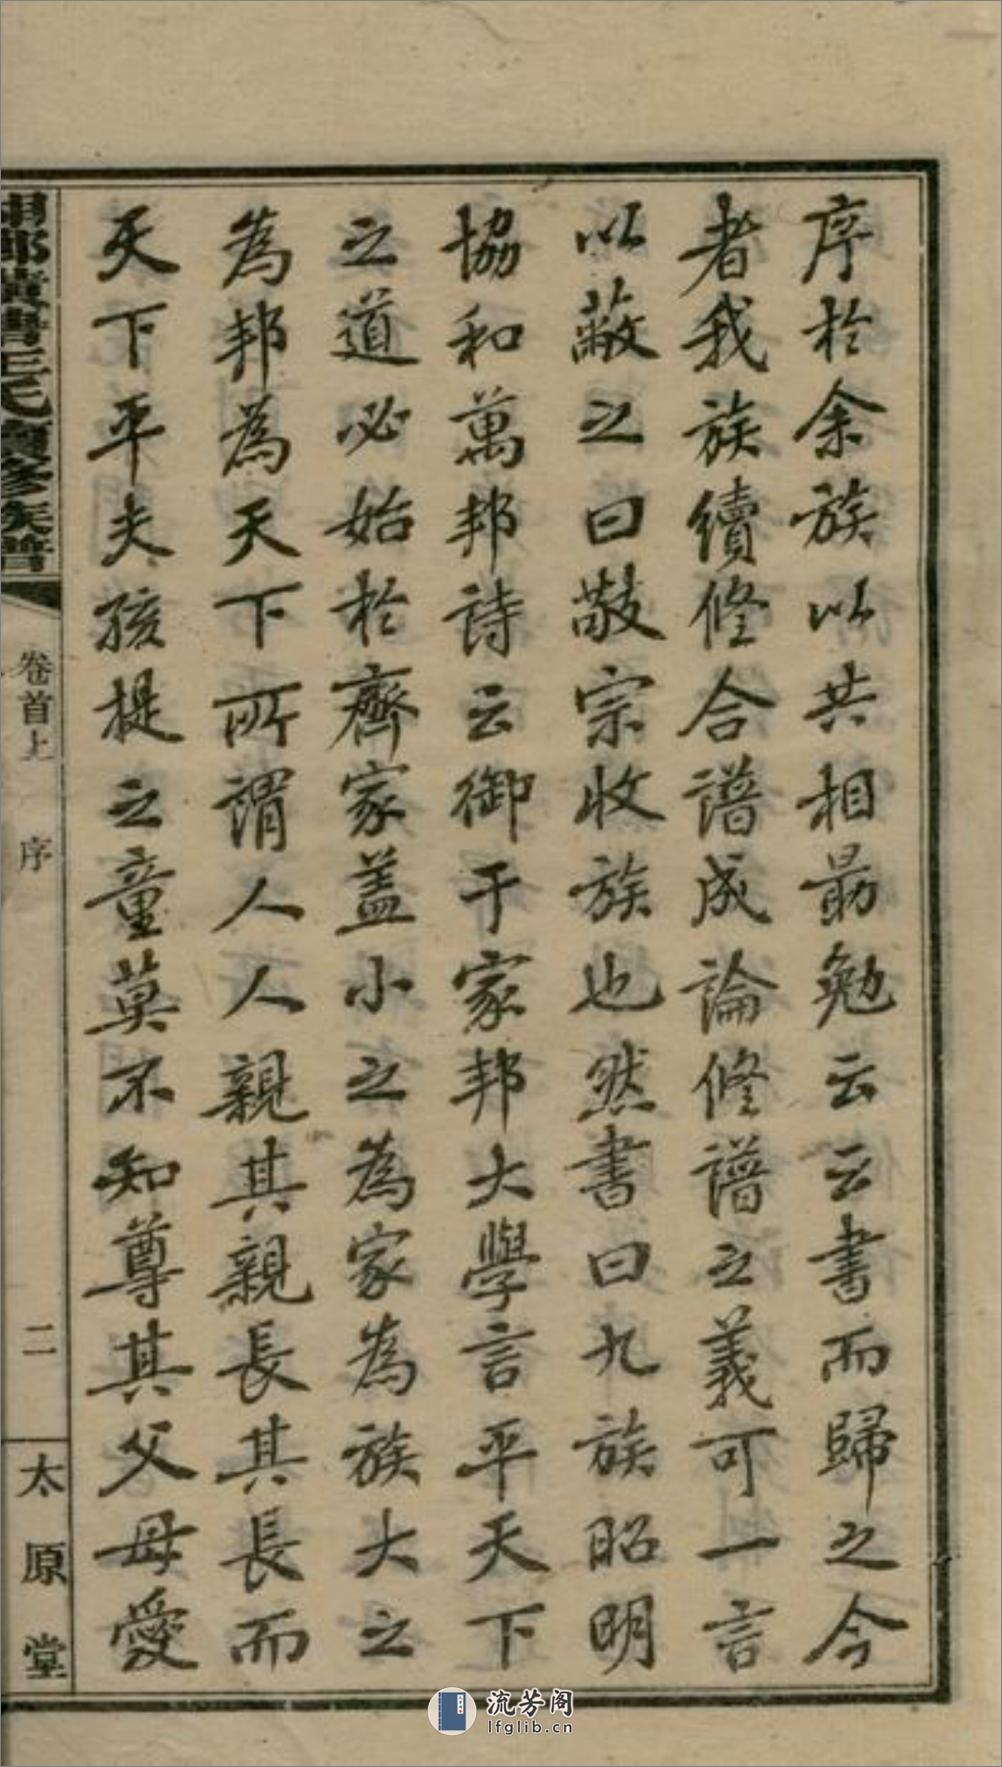 序於余族以共相勗勉云云書而歸之今
者我族續修合譜成論修譜之義可一言
以蔽之曰敬宗收族也然書曰九族昭明
協和萬邦詩云御于家邦大學言平天下
之道必始於齊家蓋小之為家為族大之
為邦為天下所謂人人親其親長其長而
天下平夫孩提之童莫不知尊其父母愛
氏續修族譜
卷首上 序
二
太原堂
流芳阁
lfglib.cn